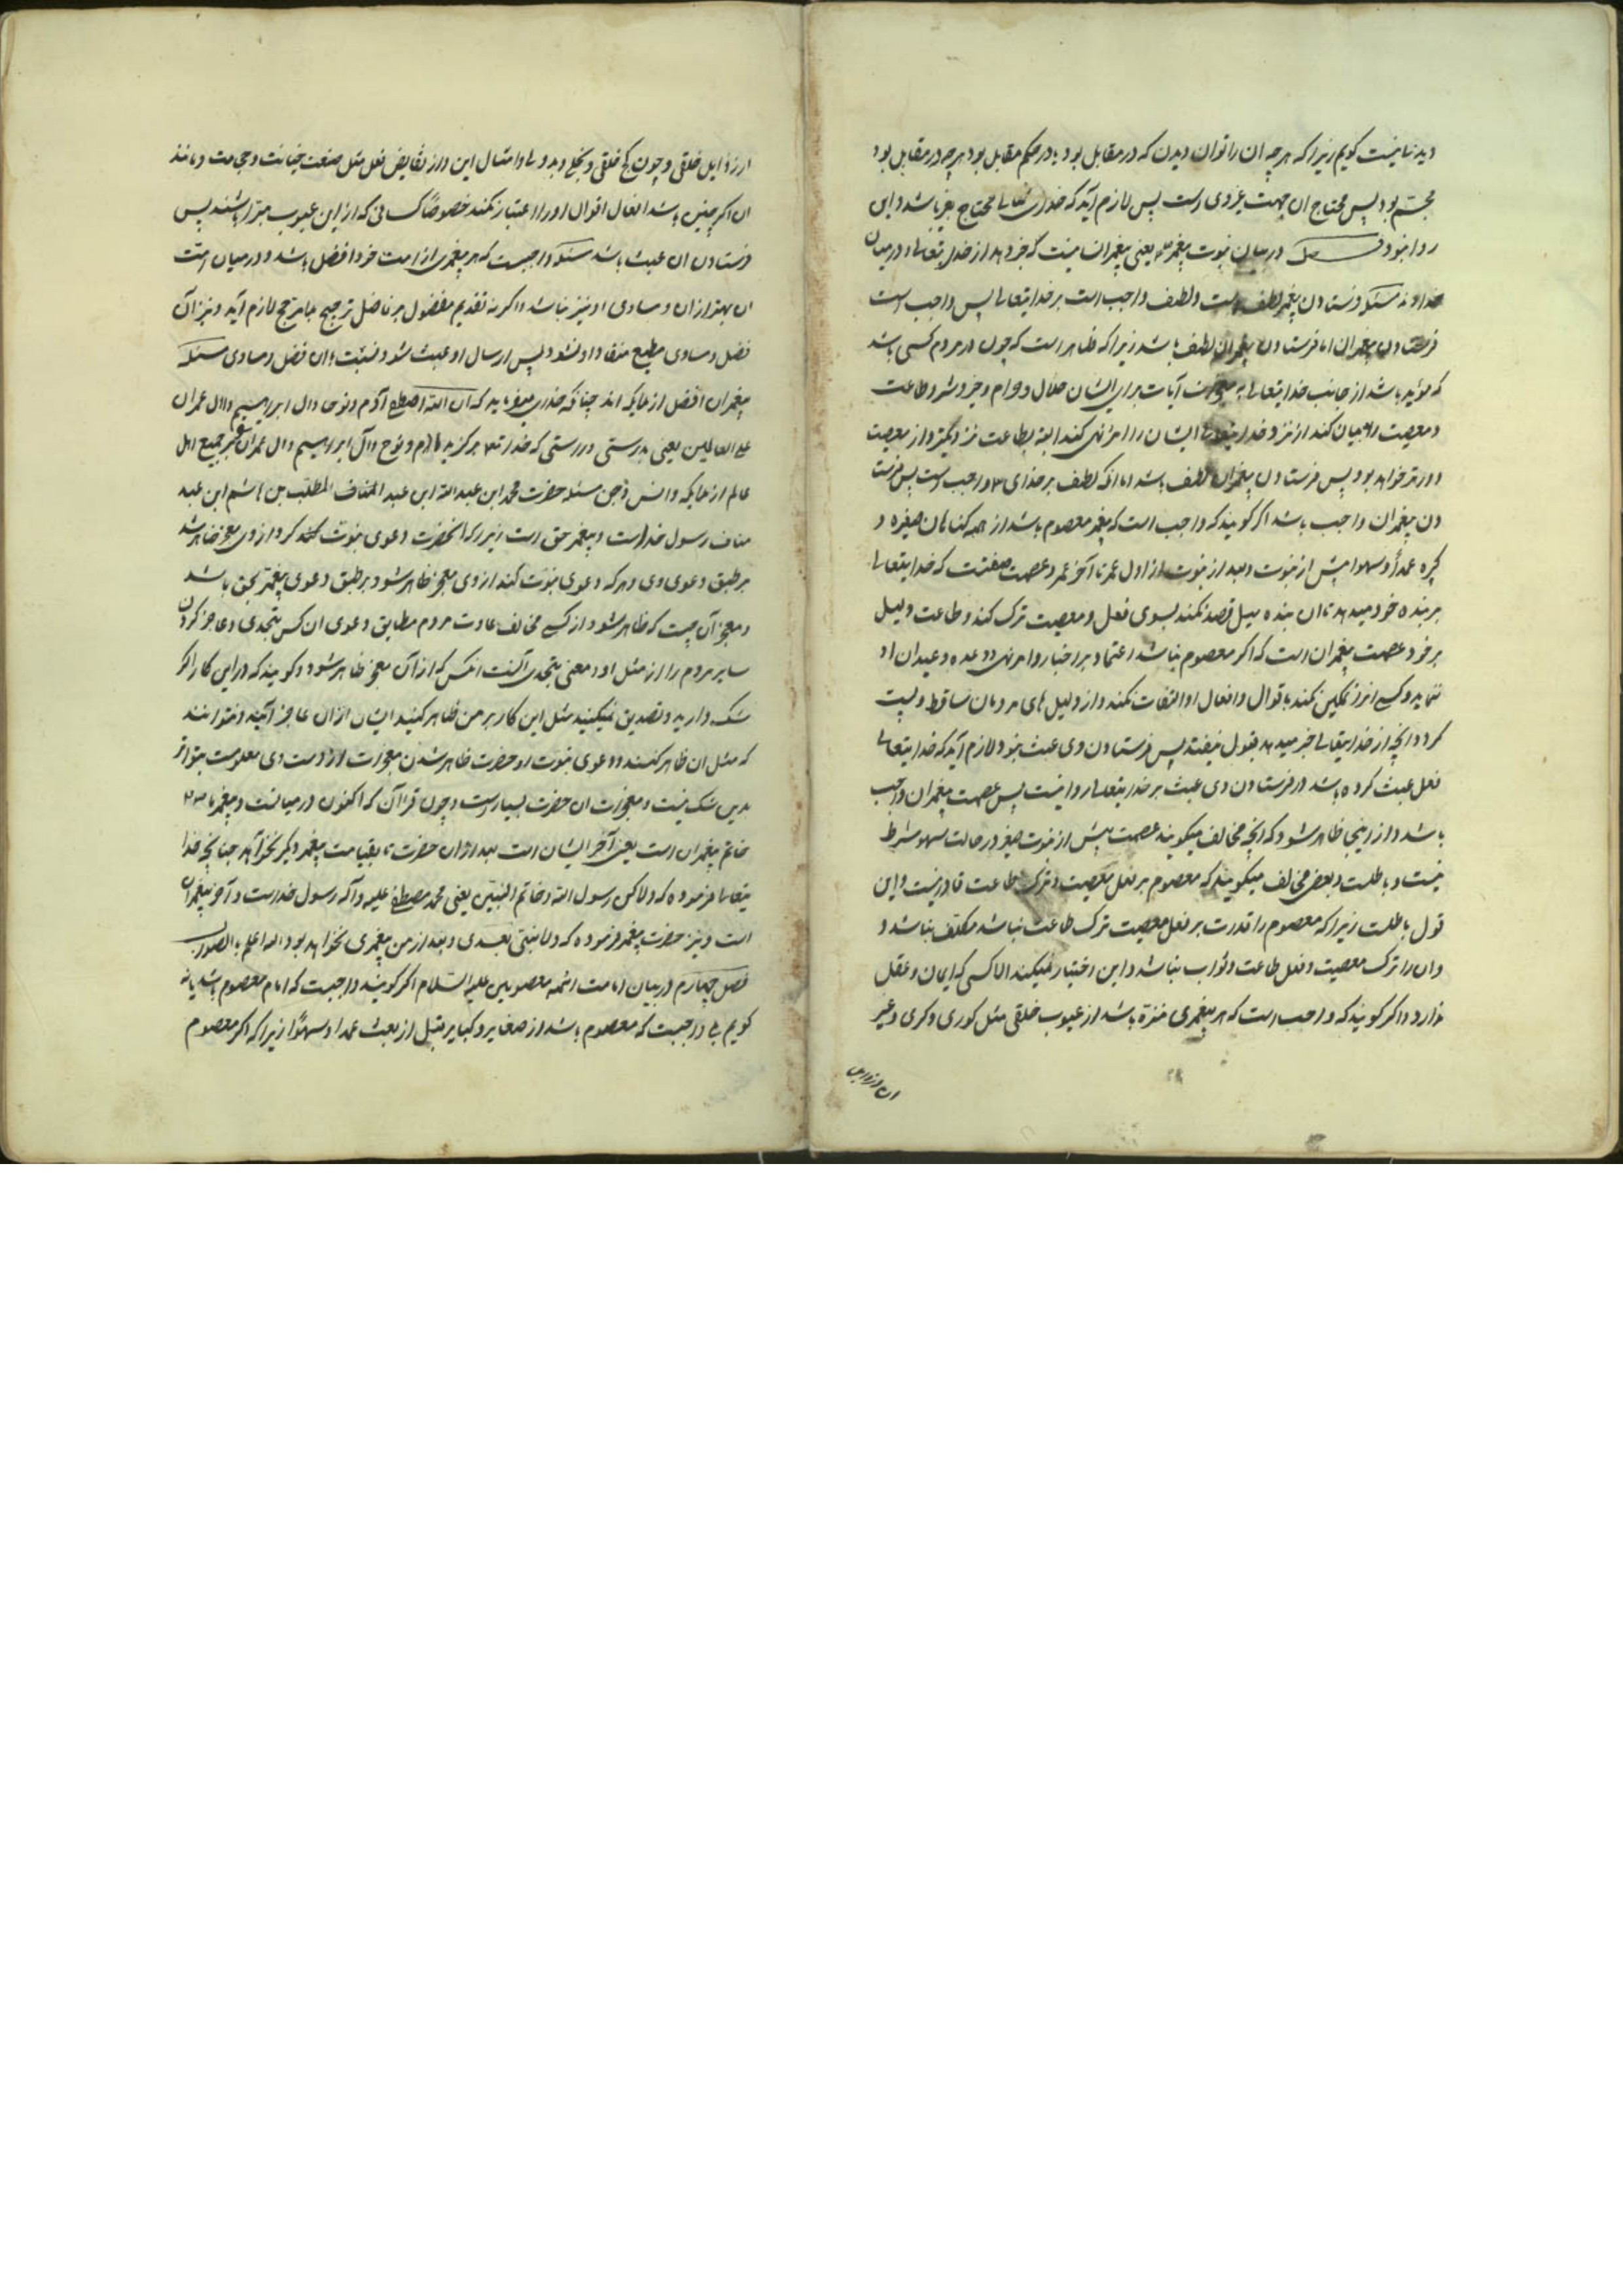 دید یا نیست کویم زیرا که هر چه ان را توان دیدن که در مقابل بود یا در حکم مقابل بود هر چه در مقابل بود
مجسم بود پس محتاج ان جهت غیر وی است پس لازم آید که خدای تعالی محتاج بغیر باشد و این
روا نبود فصل در بیان نبوت پیغمبر یعنی پیغمبر انسانیست که خبر دهد از خدایتعالی و در میان
خدا و نه مسئله فرستادن پیغمبر لطف است و لطف واجب است بر خدایتعالی پس واجب است
فرستادن پیغمبران اما فرستادن پیغمبران لطف باشد زیرا که ظاهر است که چون در مردم کسی باشد
که مؤید باشد از جانب خدایتعالی به معجزات آیات برای ایشان حلال و حرام و خیر و شر و طاعت
و معصیت را بیان کند از نزد خدایتعالی ایشان را امر و نهی کند البته بطاعت نزدیکتر و از معصیت
دورتر خواهد بود پس فرستادن پیغمبران لطف باشد اما انکه لطف بر خدای واجب است پس فرستا
دن پیغمبران واجب باشد اکر کویند که واجب است که پیغمبر معصوم باشد از همه کناهان صغیره و
کبیره عمدأ و سهوا پیش از نبوت و بعد از نبوت از اول عمر تا آخر عمر و عصمت صفتیست که خدایتعالی
بر بنده خود میدهد تا ان بنده میل و قصد نکند بسوی فعل و معصیت ترک کند و طاعت و دلیل
بر خرد عصمت پیغمبران است که اکر معصوم نباشد اعتماد بر اخبار و امر و نهی و وعده و وعید ان او
ننماید و کسی تمکین نکند باقوال و افعال او التفات نکند و از دلیل های مردمان ساقط و پست
کردد و آنچه از خدایتعالی خبر میدهد قبول نیفتد پس فرستادن وی عبث بود لازم آید که خدایتعالی
فعل عبث کرده باشد در فرستادن وی عبث بر خدایتعالی روا نیست پس عصمت پیغمبران واجب
باشد و از اینجا ظاهر شود که آنچه مخالف میکویند عصمت پیش از نبوت و در حالت سهو شرط
نیست و باطلست و بعضی مخالف میکویند که معصوم بر فعل معصیت و ترک طاعت قادر نیست و این
قول باطلست زیرا که معصوم را قدرت بر فعل معصیت ترک طاعت نباشد مکلف نباشد و
و ان را ترک معصیت و فعل طاعت و ثواب نباشد و این اختیار نمیکند الا کسی که ایمان و عقل
ندارد و اکر کویند که واجب است که هر پیغمبری منزه باشد از عیوب خلقی مثل کوری و کری و غیر
ان و از رذایل
از رذایل خلقی و چون کج خلقی و بخل و بد دلی و امثال این و از نقایض فعل مثل صنعت خیانت و حجامت و مانند
ان اکر چنین باشد افعال اقوال او را اعتبار نکنند خصوصاً کسانی که از این عیوب مبرا باشند پس
فرستادن ان عبث باشد مسئله واجبست که هر پیغمبری از امت خود افضل باشد و در میان امت
ان بهتر از ان و مساوی او نیز نباشد و اکر نه تقدیم مفضول بر فاضل ترجیح بلا مرجح لازم آید و نیز آن
فضل و مساوی مطیع منقاد او نشود پس ارسال او عبث شود نسبت بان فضل و مساوی مسئله
پیغمبران افضل از ملایکه اند چنانکه خدای میفرماید که ان الله اصطفی آدم و نوحا و ال ابرهیم و ال عمران
علی العالمین یعنی بدرستی و راستی که خدا برکزید آدم و نوح و آل ابراهیم و ال عمران بر جمیع اهل
عالم از ملایکه و انس و جن مسئله حضرت محمد ابن عبد الله ابن عبد المطلب بن هاشم ابن عبد
مناف رسول خداست و پیغمبر حق است زیرا که انحضرت دعوی نبوت کرد و از وی معجز ظاهر شد
بر طبق دعوی وی و هر که دعوی نبوت کند از وی معجز ظاهر شود بر طبق دعوی پیغمبر بحق باشد
و معجز آن چیست که ظاهر شود از کسی مخالف عادت مردم مطابق دعوی ان کس بتحدی و عاجز کردن
سایر مردم را از مثل او و معنی بتحدی آنست انکس که از آن معجز ظاهر شود و کوید که در این کار اکر
شک دارید و تصدیق نمیکنید مثل این کار بر من ظاهر کنید ایشان از ان عاجز آیند و نتوانند
که مثل ان ظاهر کنند و دعوی نبوت او حضرت ظاهر شدن معجزات از دست وی معلومست بتواتر
بدین شک نیست و معجزات ان حضرت بسیار است و چون قرآن که اکنون در میانست و پیغمبر ما
خاتم پیغمبران است یعنی آخر ایشان است بعد از ان حضرت تا بقیامت پیغمبر دیکر نخواهد چنانچه خدا
یتعالی فرموده که و لاکن رسول الله و خاتم النبیین یعنی محمد مصطفی علیه و آله رسول خداست و آخر پیغمبران
است و نیز حضرت پیغمبر فرموده که و لا نبی بعدی و بعد از من پیغمبری نخواهد بود و الله اعلم بالصواب
فصل چهارم در بیان امامت ائمه معصومین علیهم السلام اکر کویند واجبست که امام معصوم باشد یا نه
کویم بلی واجبست که معصوم باشد از صغایر و کبایر قبل از بعثت عمدا و سهوًا زیرا که اکر معصوم